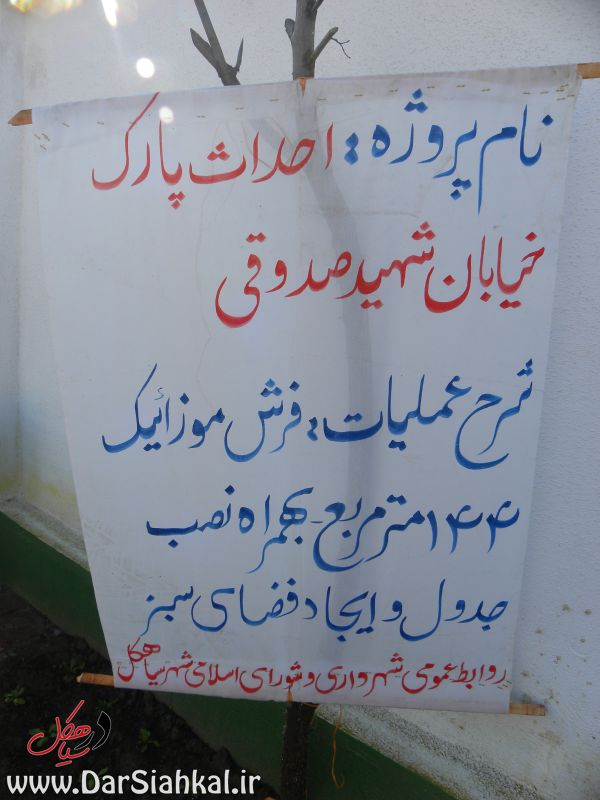 نام پروژه: احداث پارک
خیابان شهید صدوقی
شرح عملیات: فرش موزائیک
۱۴۴ مترمربع - بهمراه نصب
جدول و ایجاد فضای سبز
روابط عمومی شهرداری و شورای اسلامی شهر سیاهکل
در سیاهکل
www.DarSiahkal.ir